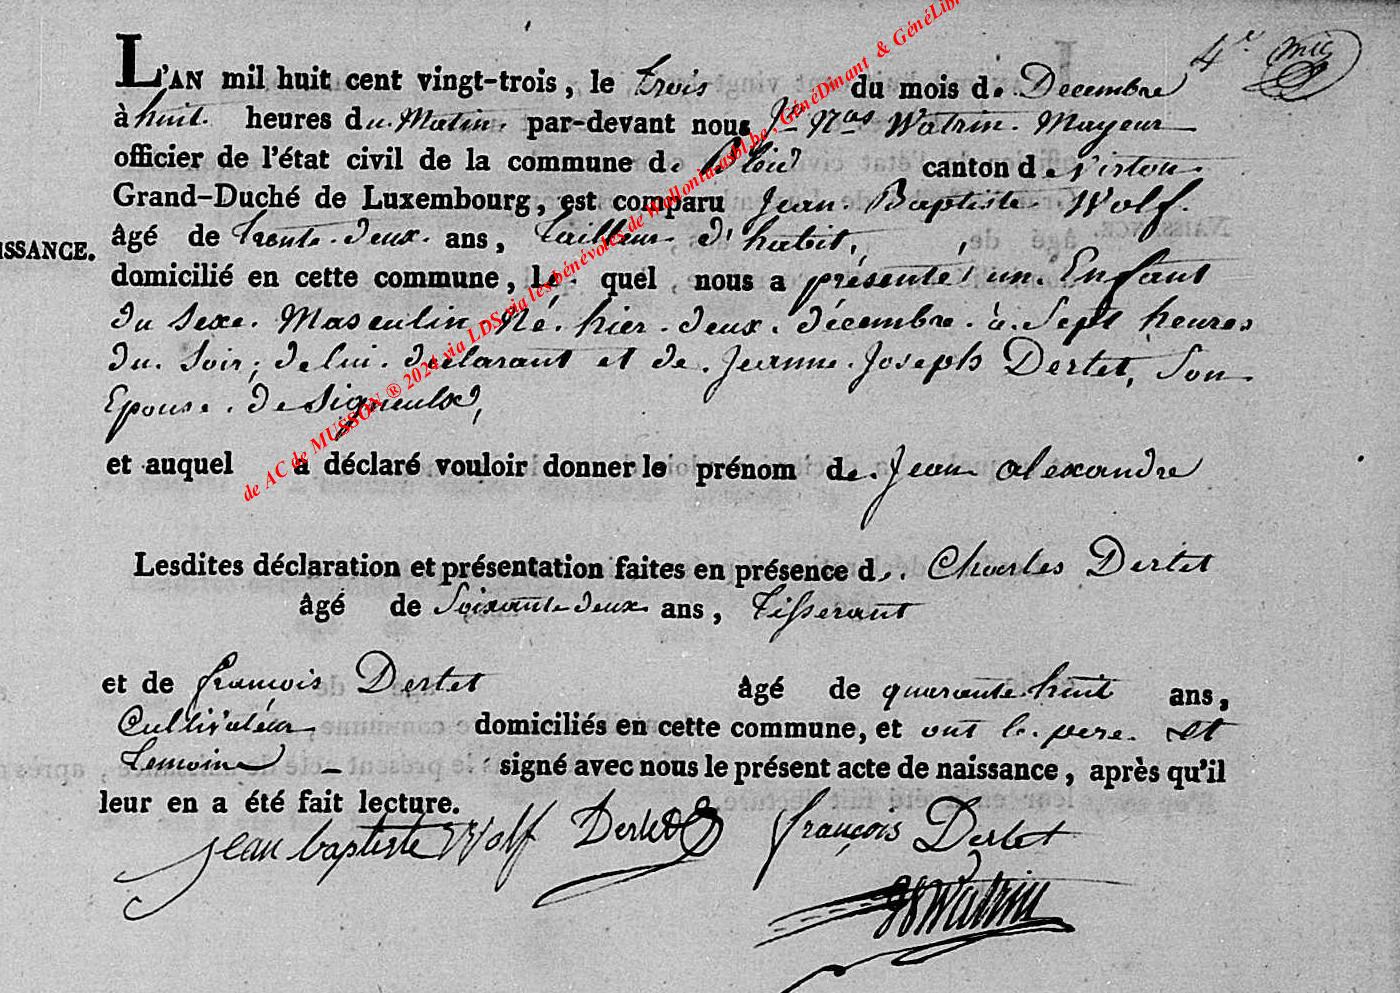 4e
L'AN mil huit cent vingt-trois, le trois du mois de Decembre
à huit heures du Matin par-devant nous Jn Nas Watrin Mayeur
officier de l'état civil de la commune de canton de Virton
Grand-Duché de Luxembourg, est comparu Jean Baptiste Wolf
ISSANCE. âgé de trente deux ans, tailleur d'habit,
domicilié en cette commune, le quel nous a présenté un Enfant
du sexe Masculin Né hier deux décembre à Sept heures
du Soir, de lui declarant et de Jeanne Joseph Dertet, Son
Epouse de Signeulx,
et auquel a déclaré vouloir donner le prénom de Jean alexandre
Lesdites déclaration et présentation faites en présence de Charles Dertet
âgé de Soixante deux ans, Tisserant
et de françois Dertet âgé de quarante huit ans,
Cultivateur domiciliés en cette commune, et ont le pere et
Temoins signé avec nous le présent acte de naissance, après qu'il
leur en a été fait lecture.
jean baptiste Wolf Dertet françois Dertet
Watrin
de AC de MUSSON ® 2024 via LDS via les bénévoles de Wallonia-asbl.be, GénéDinant & GénéLibr